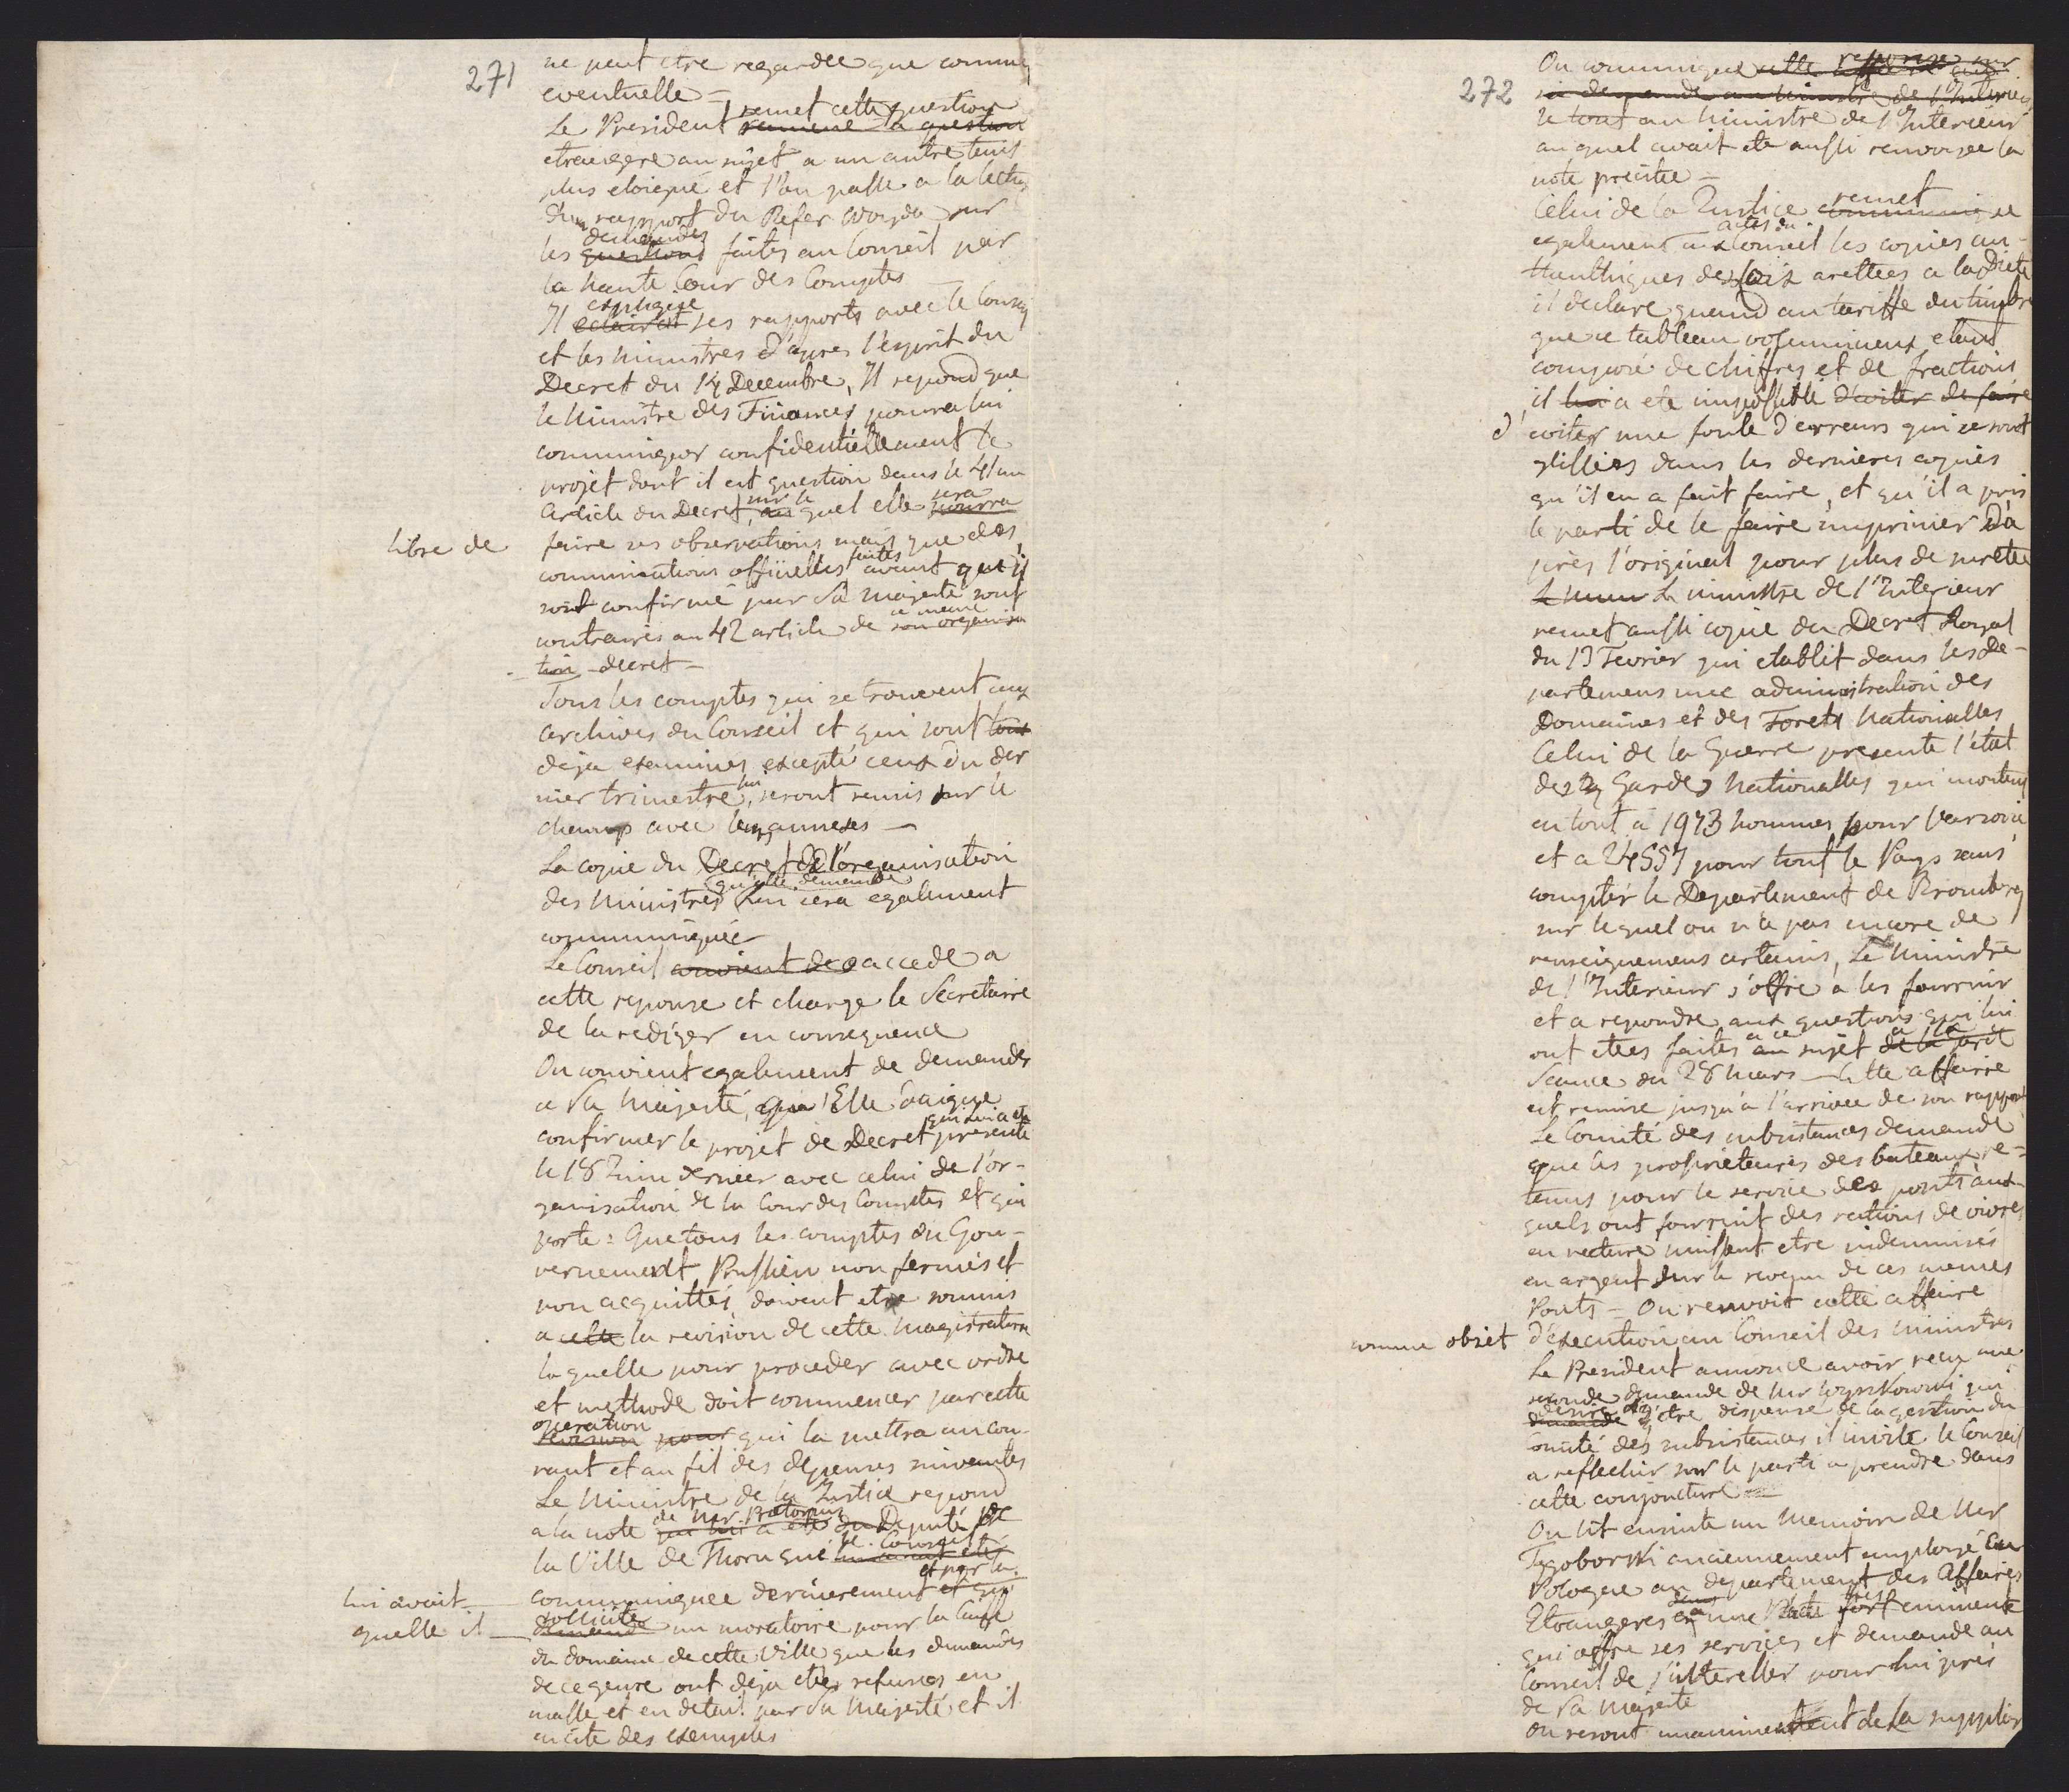 271
ne peut etre regardée que comme
eventuelle =
remet cette question
Le President ramene la question
etrangere au sujet a un autre tems
plus eloigné et l'on passe a la lectu
d'un rapport du Refer Woyda sur
demandes
les questions faites au Conseil par
la haute Cour des Comptes
explique
Il eclaircit ses rapports avec le Conseil
et les Ministres d'apres l'esprit du
Decret du 14 Decembre, Il repond que
le Ministre des Finances pourra lui
communiquer confidentiellement le
projet dont il est question dans le 41 me
sur le sera
Article du Decret, au quel elle pourra
libre de faire ses observations mais que des
faites
communications officielles avant qu'il
soit confirmé par Sa Majesté sont
ce meme
contraires au 42 article de son organisa
tion decret —
Tous les comptes qui se trouvent aux
archives du Conseil et qui sont tous
deja examinés excepté ceux du der
lui
nier trimestre, seront remis sur le
champ avec leurs annexes —
La copie du Decret de l'organisation
qu'elle demande
des Ministres lui sera egalement
communiquée
Le Conseil convient de accede a
cette reponse et charge le Secretaire
de la rediger en consequence
On convient egalement de demander
a Sa Majesté, que Elle daigne
qui lui a ete
confirmer le projet de Decret presenté
le 18 Juin dernier avec celui de l'or-
ganisation de la Cour des Comptes et qui
porte: Que tous les comptes du Gou-
vernement Prussien non fermés et
non acquittés doivent etre soumis
a cette la revision de cette Magistrature
laquelle pour proceder avec ordre
et methode doit commencer par cette
operation
revision pour qui la mettra au cou-
rant et au fil des depenses suivantes
Le Ministre de la Justice repond
de Mr. Pretorius
a la note qui lui a eté du Deputé de
le Conseil
la Ville de Thorn que
et par la
lui avait communiquée dernierement et qui
sollicite
quelle il demande un moratoire pour la Caisse
du domaine de cette Ville que les demandes
de ce genre ont deja etés refusées en
masse et en detail par Sa Majesté et il
en cite des exemples
272
reponse sur
On communique cette
sa demande au Ministre de l'Interieur
le tout au Ministre de l'Interieur
au quel avait ete aussi renvoyée la
note precitée —
remet
Celui de la Justice communique
actes du
egalement aux Conseil les copies au-
thentiques des loix arettees a la Diete
il declare quand au tariffe du timbre
que ce tableau volumineux etant
composé de chiffres et de fractions
il lui a ete impossible d'eviter de faire
d'eviter une foule d'erreurs qui se sont
glissées dans les dernieres copies
qu'il en a fait faire, et qu'il a pris
le parti de le faire imprimer d'a
près l'original pour plus de sureté
Le Ministre de l'Interieur
remet aussi copie du Decret Royal
du 13 Fevrier qui etablit dans les de-
partemens une administration des
Domaines et des Forets Nationalles
Celui de la Guerre presente l'etat
des Gardes Nationalles qui montent
en tout a 1973 hommes pour Varsovie
et a 24557 pour tout le Pays sans
compter le Departement de Bromberg
sur lequel on n'a pas encore de
renseignemens certains, Le Ministre
de l'Interieur s'offre a les fournir
et a repondre aux questions qui lui
a ce a la
ont etees faites au sujet de la
Seance du 28 Mars — Cette affaire
est remise jusqu'a l'arrivee de son rapport
Le Comité des subsistances demande
que les proprietaires des bateaux re-
tenus pour le service des ponts aux-
quels ont fournit des rations de vivres
en nature puissent etre indemnisés
en argent sur le revenu de ces memes
Ponts — On renvoit cette affaire
comme objet d'execution au Conseil des Ministres
Le President annonce avoir reçu une
seconde demande de Mr Wyszkowski qui
desire d'
demande d'etre dispensé de la gestion du
Comité des subsistances il invite le Conseil
a reflechir sur le parti a prendre dans
cette conjoncture
On lit ensuite un Memoire de Mr
Tegoborski anciennement employé en
Pologne au departement des Affaires
Etrangeres une
qui offre ses services et demande au
Conseil de s'interesser pour lui près
de Sa Majesté
On resout unanimement de la supplier